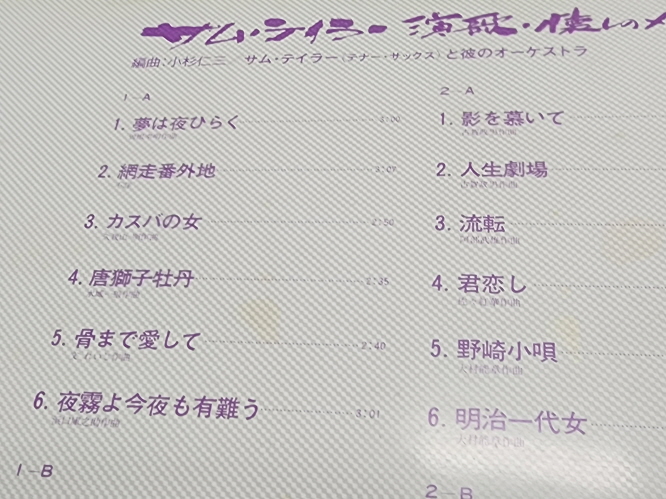 サム・テイラー 演歌・懐しの
編曲:小杉仁三／サム・テイラー(テナー・サックス)と彼のオーケストラ
1-A
1. 夢は夜ひらく 3:00
2. 網走番外地 3:07
3. カスバの女 2:50
4. 唐獅子牡丹 2:35
5. 骨まで愛して 2:40
6. 夜霧よ今夜も有難う 3:01
浜口庫之助作曲
1-B
2-A
1. 影を慕いて
古賀政男作曲
2. 人生劇場
古賀政男作曲
3. 流転
阿部武雄作曲
4. 君恋し
佐々紅華作曲
5. 野崎小唄
大村能章作曲
6. 明治一代女
大村能章作曲
2-B